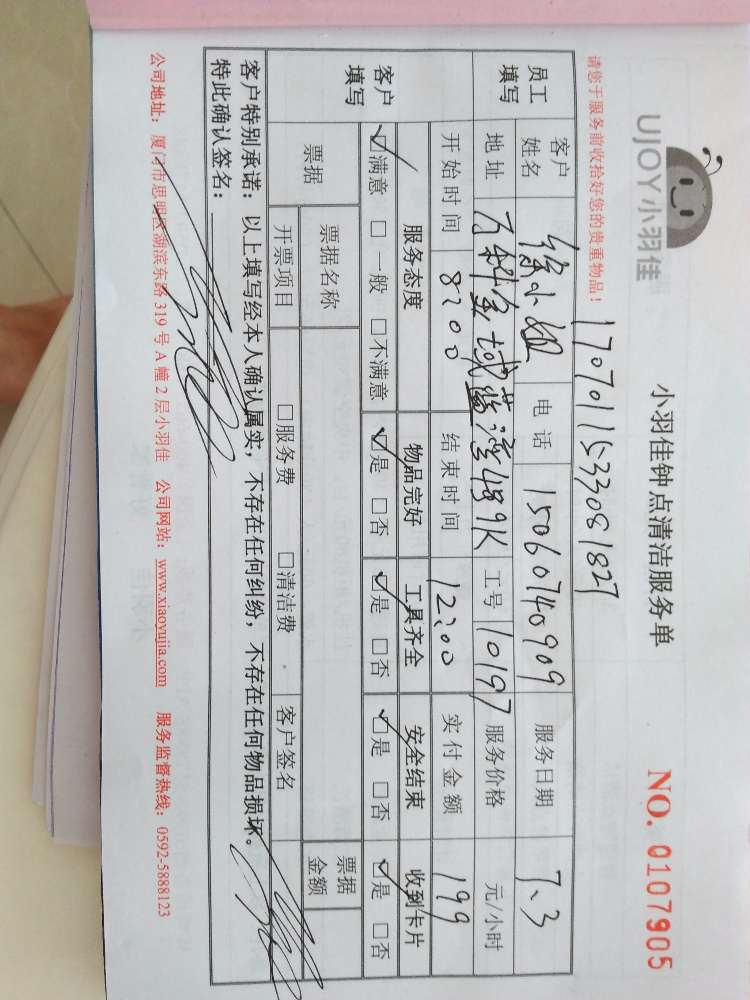 UJOY小羽佳
小羽佳钟点清洁服务单
NO. 0107905
1707011533081827
请您于服务前收拾好您的贵重物品！
员工填写 客户姓名 徐小姐 电话 15060740909 服务日期 7.3
地址 万科金域蓝湾489K 工号 10197 服务价格 元/小时
开始时间 8:00 结束时间 12:00 实付金额 199
客户填写 服务态度 物品完好 工具齐全 安全结束 收到卡片
☑满意 □一般 □不满意 ☑是 □否 ☑是 □否 ☑是 □否 ☑是 □否
票据 票据名称 票据金额
开票项目 □服务费 □清洁费 客户签名
客户特别承诺：以上填写经本人确认属实，不存在任何纠纷，不存在任何物品损坏。
特此确认签名：
公司地址：厦门市思明区湖滨东路 319 号 A 幢 2 层小羽佳 公司网站：www.xiaoyujia.com 服务监督热线：0592-5888123